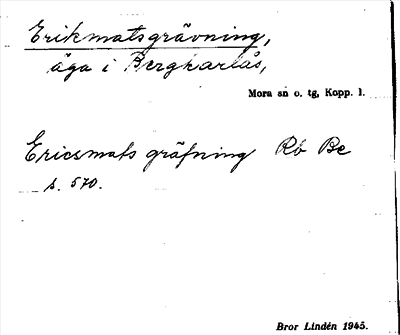 Erikmatsgrävning,
äga i Bergkarlås,
Mora sn o. tg, Kopp. l.
Ericsmats gräfning Rb Be
s. 570.
Bror Lindén 1945.